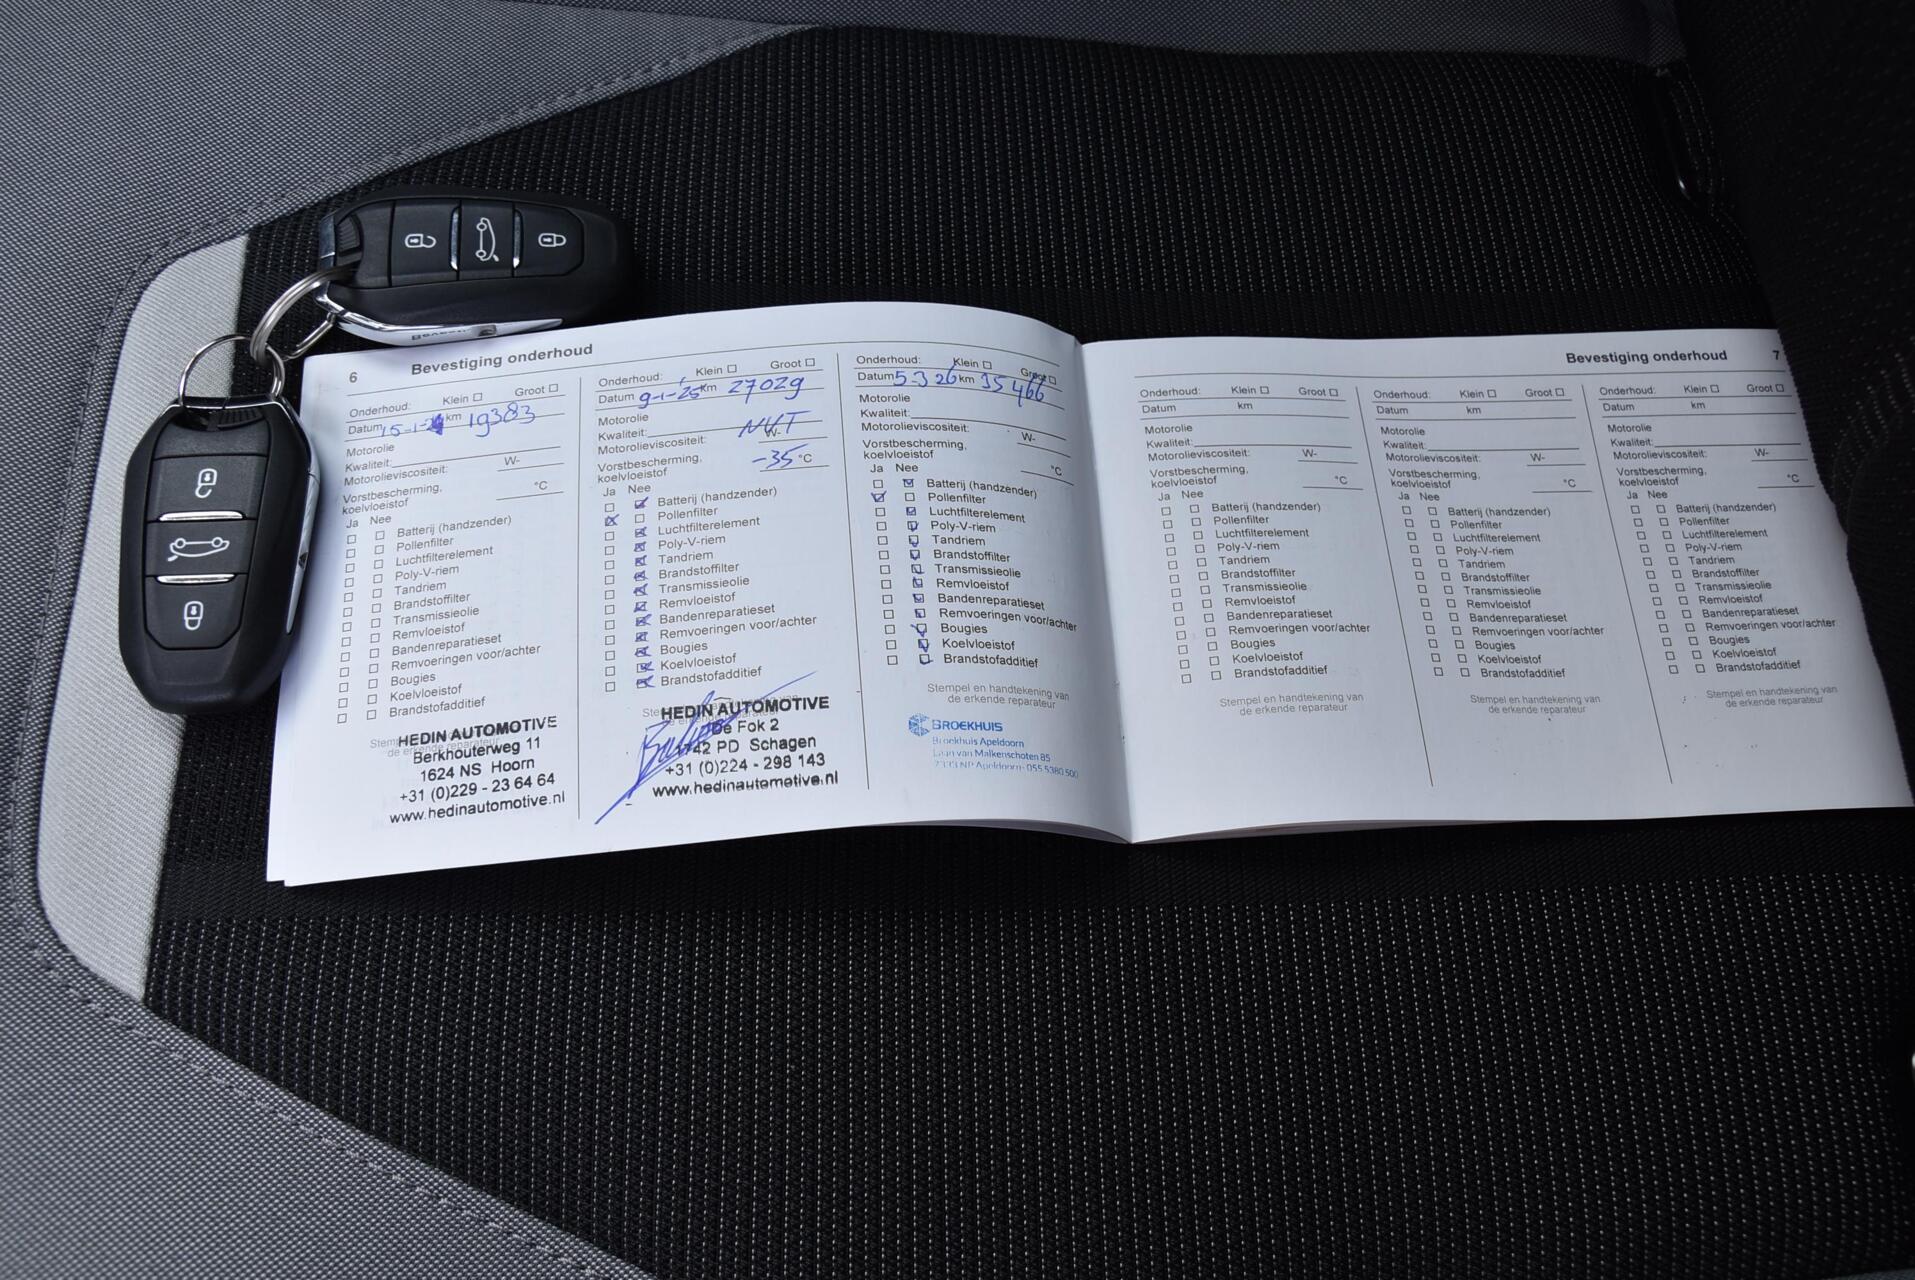 6 Bevestiging onderhoud
Onderhoud: Klein ☐ Groot ☐
Datum 15-1-24 km 19383
Motorolie
Kwaliteit:
Motorolieviscositeit: W-
Vorstbescherming, °C
koelvloeistof
Ja Nee
Batterij (handzender)
Pollenfilter
Luchtfilterelement
Poly-V-riem
Tandriem
Brandstoffilter
Transmissieolie
Remvloeistof
Bandenreparatieset
Remvoeringen voor/achter
Bougies
Koelvloeistof
Brandstofadditief
Stempel
de erkende reparateur
HEDIN AUTOMOTIVE
Berkhouterweg 11
1624 NS Hoorn
+31 (0)229 - 23 64 64
www.hedinautomotive.nl
Onderhoud: Klein ☐ Groot ☐
Datum 9-1-25 km 27029
Motorolie
Kwaliteit: NVT
Motorolieviscositeit: W-
Vorstbescherming, -35 °C
koelvloeistof
Ja Nee
Batterij (handzender)
Pollenfilter
Luchtfilterelement
Poly-V-riem
Tandriem
Brandstoffilter
Transmissieolie
Remvloeistof
Bandenreparatieset
Remvoeringen voor/achter
Bougies
Koelvloeistof
Brandstofadditief
HEDIN AUTOMOTIVE
De Fok 2
1742 PD Schagen
+31 (0)224 - 298 143
www.hedinautomotive.nl
Onderhoud: Klein ☐ Groot ☐
Datum 5-3 26 km 35466
Motorolie
Kwaliteit:
Motorolieviscositeit: W-
Vorstbescherming,
koelvloeistof °C
Ja Nee
Batterij (handzender)
Pollenfilter
Luchtfilterelement
Poly-V-riem
Tandriem
Brandstoffilter
Transmissieolie
Remvloeistof
Bandenreparatieset
Remvoeringen voor/achter
Bougies
Koelvloeistof
Brandstofadditief
Stempel en handtekening van
de erkende reparateur
BROEKHUIS
Broekhuis Apeldoorn
Laan van Malkenschoten 85
7333 NP Apeldoorn- 055 5380 500
Bevestiging onderhoud 7
Onderhoud: Klein ☐ Groot ☐
Datum km
Motorolie
Kwaliteit:
Motorolieviscositeit: W-
Vorstbescherming,
koelvloeistof °C
Ja Nee
Batterij (handzender)
Pollenfilter
Luchtfilterelement
Poly-V-riem
Tandriem
Brandstoffilter
Transmissieolie
Remvloeistof
Bandenreparatieset
Remvoeringen voor/achter
Bougies
Koelvloeistof
Brandstofadditief
Stempel en handtekening van
de erkende reparateur
Onderhoud: Klein ☐ Groot ☐
Datum km
Motorolie
Kwaliteit:
Motorolieviscositeit: W-
Vorstbescherming,
koelvloeistof °C
Ja Nee
Batterij (handzender)
Pollenfilter
Luchtfilterelement
Poly-V-riem
Tandriem
Brandstoffilter
Transmissieolie
Remvloeistof
Bandenreparatieset
Remvoeringen voor/achter
Bougies
Koelvloeistof
Brandstofadditief
Stempel en handtekening van
de erkende reparateur
Onderhoud: Klein ☐ Groot ☐
Datum km
Motorolie
Kwaliteit:
Motorolieviscositeit: W-
Vorstbescherming,
koelvloeistof °C
Ja Nee
Batterij (handzender)
Pollenfilter
Luchtfilterelement
Poly-V-riem
Tandriem
Brandstoffilter
Transmissieolie
Remvloeistof
Bandenreparatieset
Remvoeringen voor/achter
Bougies
Koelvloeistof
Brandstofadditief
Stempel en handtekening van
de erkende reparateur